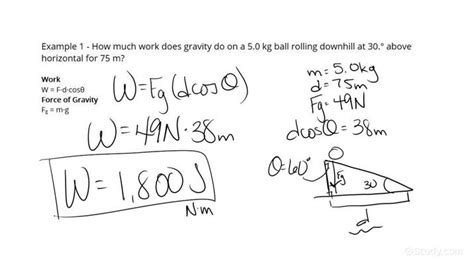 Example 1 - How much work does gravity do on a 5.0 kg ball rolling downhill at 30.° above
horizontal for 75 m?
Work
W = F·d·cosθ
Force of Gravity
Fg = m·g
W=Fg(dcosθ)
W=49N·38m
W=1,800J
N·m
m=5.0kg
d=75m
Fg=49N
dcosθ=38m
θ=60°
Fg
30
d
Study.com